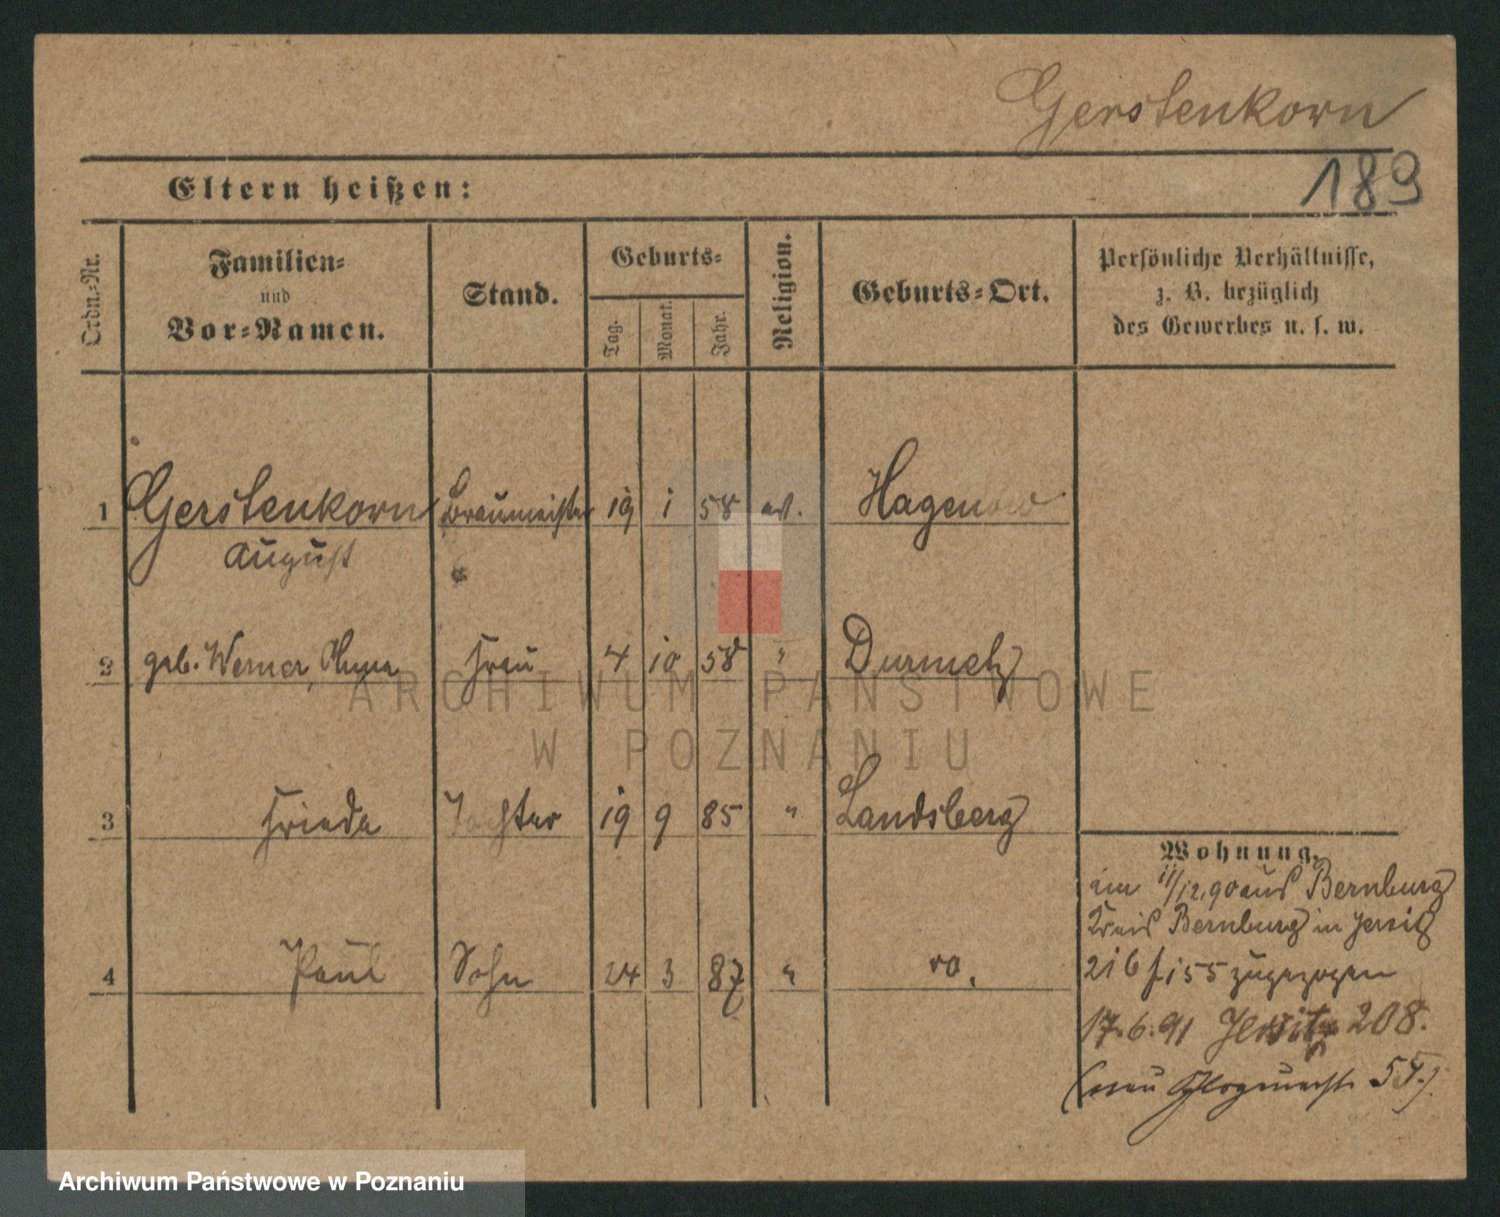 Gerstenkorn
189
Eltern heißen:
Ordn.-Nr.
Familien-
und
Vor-Namen.
Stand.
Geburts-
Tag.
Monat.
Jahr.
Religion.
Geburts-Ort.
Persönliche Verhältnisse,
z. B. bezüglich
des Gewerbes u. s. w.
1 Gerstenkorn Braumeister 19 1 58 ev. Hagenow
August
2 geb. Werner, Frau 4 10 58 " Durmetz
ARCHIWUM PAŃSTWOWE
W POZNANIU
3 Frieda Tochter 19 9 85 " Landsberg
4 Paul Sohn 24 3 87 "
Wohnung.
am 11/12.90 aus Bernburg
Kreis Bernburg in Jersitz
216 f 155 zugezogen
17.6.91 Jersitz 208.
(neu
Archiwum Państwowe w Poznaniu